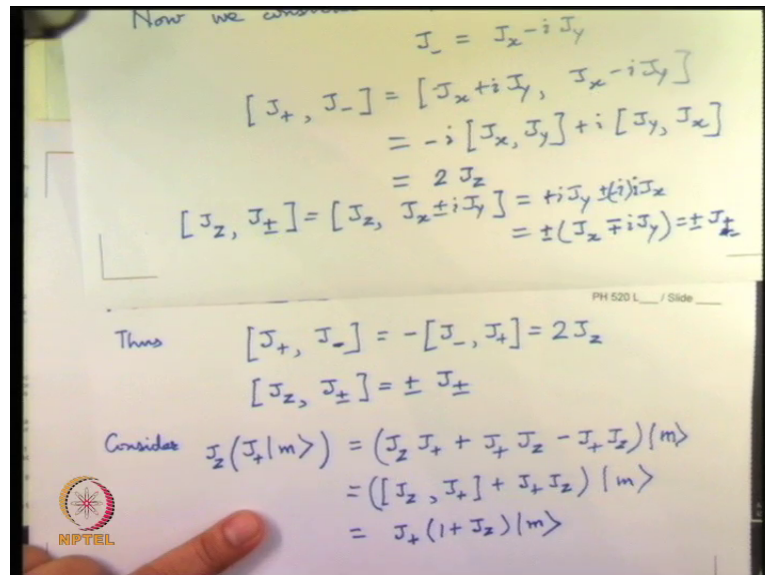 Now we
J_ = Jx - i Jy
[J+, J-] = [Jx + i Jy, Jx - i Jy]
= -i [Jx, Jy] + i [Jy, Jx]
= 2 Jz
[Jz, J±] = [Jz, Jx ± i Jy] = +i Jy ±(-i) i Jx
= ±(Jx ∓ i Jy) = ± J±
PH 520 L___ / Slide ____
Thus [J+, J-] = -[J-, J+] = 2 Jz
[Jz, J±] = ± J±
Consider Jz(J+|m>) = (Jz J+ + J+ Jz - J+ Jz)|m>
= ([Jz, J+] + J+ Jz)|m>
= J+ (1 + Jz)|m>
NPTEL